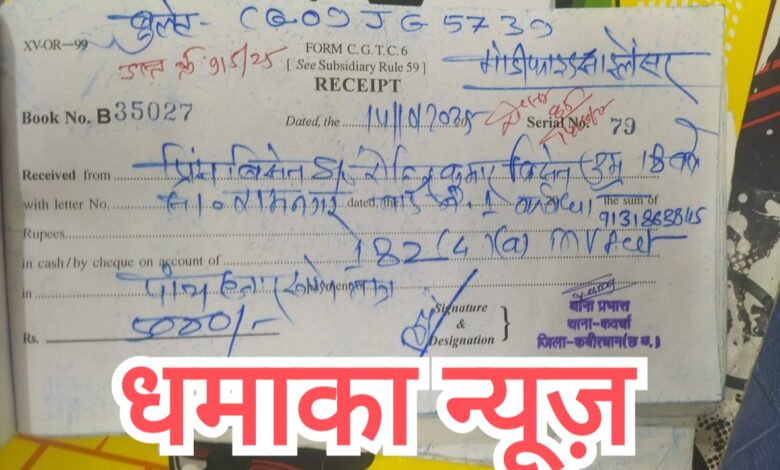 बुलेट- CG09JG5739
XV-OR—99
FORM C.G.T.C.6
[ See Subsidiary Rule 59 ]
RECEIPT
915/25
मोडीफाइड साइलेंसर
Book No. B35027
Dated, the 14/10/2025
Serial No. 79
Received from प्रिंस बिसेन कुमार बिसेन उम्र 18 वर्ष
with letter No. सा० रामनगर dated, the वार्ड नं. 1 कवर्धा the sum of
9131863845
Rupees
in cash/by cheque on account of 182(4)(a) MV Act
in पांच हजार रुपये मात्र
Rs. 5000/-
Signature
&
Designation
थाना प्रभारी
थाना-कवर्धा
जिला-कबीरधाम(छ.ग.)
धमाका न्यूज़